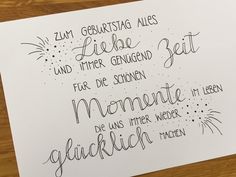 ZUM GEBURTSTAG ALLES
Liebe
UND IMMER GENÜGEND Zeit
FÜR DIE SCHÖNEN
Momente IM LEBEN
DIE UNS IMMER WIEDER
glücklich MACHEN